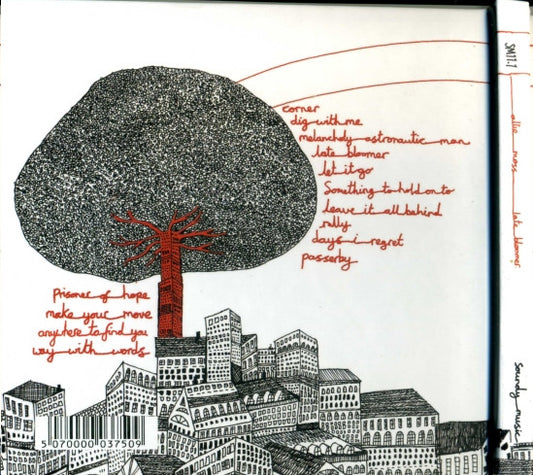 corner
dig with me
melancholy astronautic man
late bloomer
let it go
Something to hold on to
leave it all behind
rally
days i regret
passerby
Prisoner of hope
make your move
anywhere to find you
way with words
5 070000 037509
SM11.1
allie moss late bloomer
soundly music